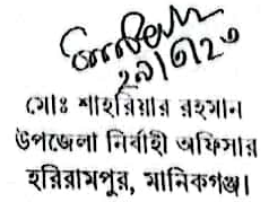 ২৯/৫/২৩
মোঃ শাহরিয়ার রহমান
উপজেলা নির্বাহী অফিসার
হরিরামপুর, মানিকগঞ্জ।